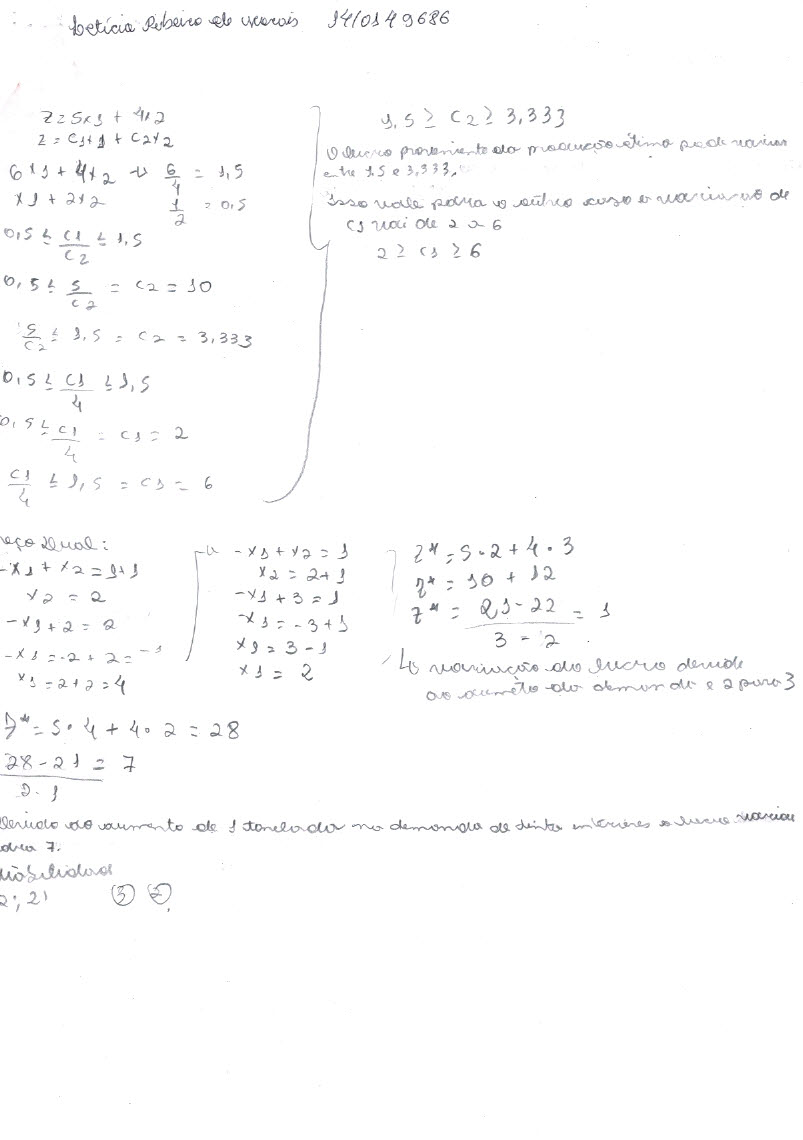 Letícia Ribeiro de Morais 14/0149686
Z = 5x1 + 4x2
Z = C1x1 + C2x2
6x1 + 4x2 → 6/4 = 1,5
x1 + 2x2 1/2 = 0,5
0,5 ≤ C1/C2 ≤ 1,5
0,5 ≤ 5/C2 = C2 = 10
5/C2 ≤ 1,5 = C2 = 3,333
0,5 ≤ C1/4 ≤ 1,5
0,5 ≤ C1/4 = C1 = 2
C1/4 ≤ 1,5 = C1 = 6
1,5 ≥ C2 ≥ 3,333
O lucro proveniente da produção ótima pode variar
entre 1,5 e 3,333.
Isso vale para o outro caso a variar de
C1 vai de 2 a 6
2 ≥ C1 ≥ 6
eço Dual:
-x1 + x2 = 1+1
x2 = 2
-x1 + 2 = 2
-x1 = -2 + 2 = -1
x1 = 2+2 = 4
Z* = 5·4 + 4·2 = 28
28 - 21 = 7
2-1
-x1 + x2 = 1
x2 = 2+1
-x1 + 3 = 1
-x1 = -3+1
x1 = 3 - 1
x1 = 2
Z* = 5·2 + 4·3
Z* = 10 + 12
Z* = 21 - 22 = 1
3 - 2
↳ variação do lucro devido
ao aumêto da demanda e 2 para 3
Devido ao aumento de 1 tonelada na demanda de tinta interiores o lucro variou
7.
2;2) ③ ②